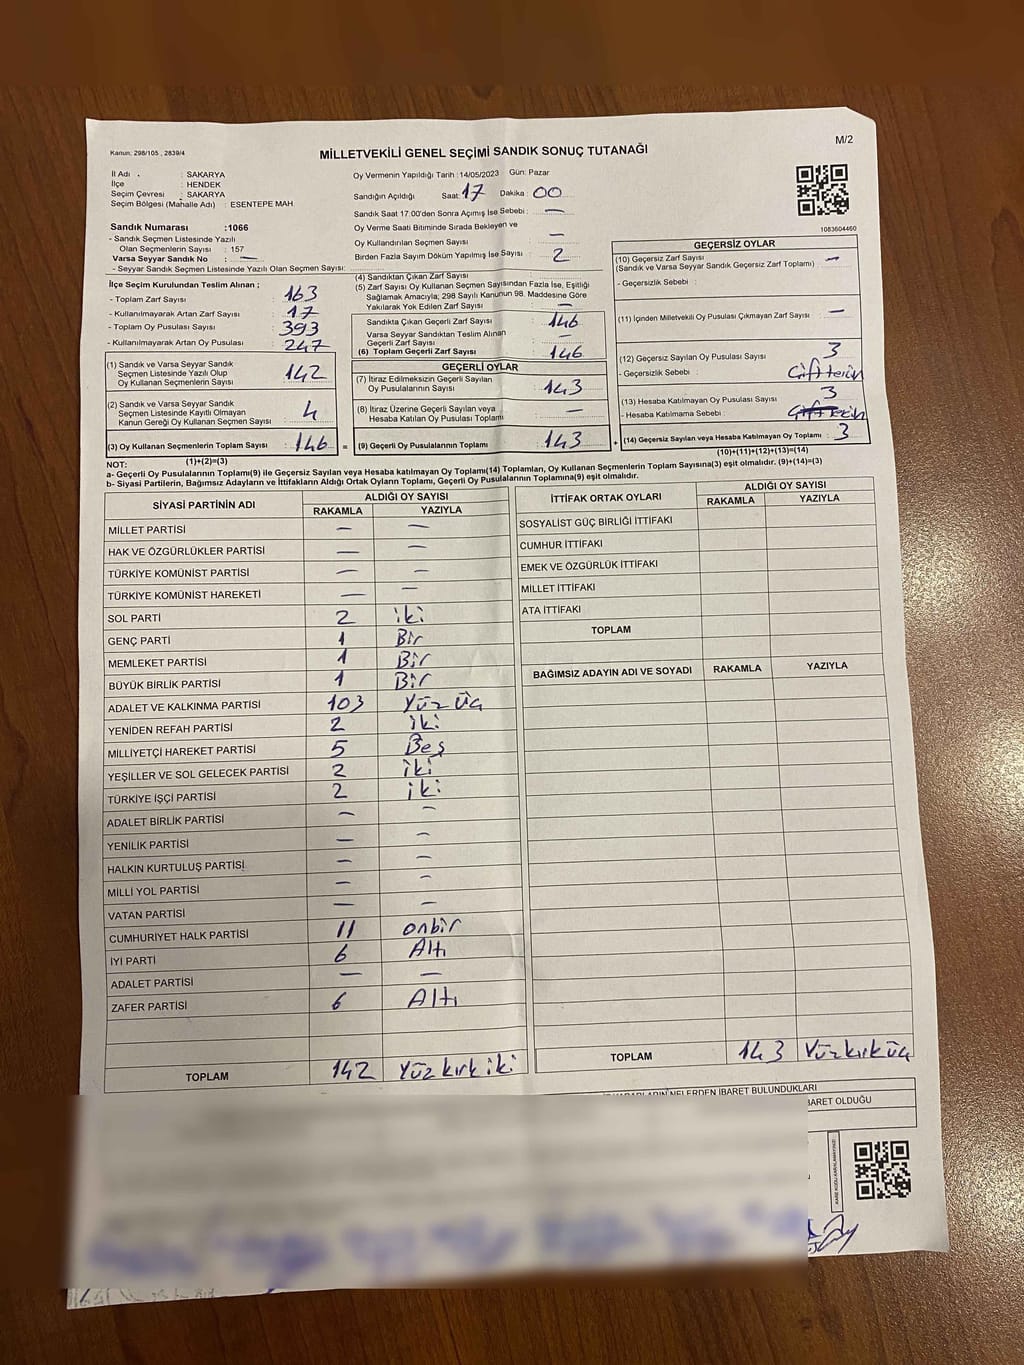 Kanun: 298/105 , 2839/4
MİLLETVEKİLİ GENEL SEÇİMİ SANDIK SONUÇ TUTANAĞI
M/2
İl Adı : SAKARYA
İlçe : HENDEK
Seçim Çevresi : SAKARYA
Seçim Bölgesi (Mahalle Adı) : ESENTEPE MAH
Oy Vermenin Yapıldığı Tarih :14/05/2023 Gün: Pazar
Sandığın Açıldığı Saat: 17 Dakika : 00
Sandık Saat 17.00'den Sonra Açımış İse Sebebi : —
Oy Verme Saati Bitiminde Sırada Bekleyen ve
Oy Kullandırılan Seçmen Sayısı —
Birden Fazla Sayım Döküm Yapılmış İse Sayısı : 2
1083604460
Sandık Numarası :1066
- Sandık Seçmen Listesinde Yazılı
Olan Seçmenlerin Sayısı : 157
Varsa Seyyar Sandık No : —
- Seyyar Sandık Seçmen Listesinde Yazılı Olan Seçmen Sayısı:
İlçe Seçim Kurulundan Teslim Alınan ;
- Toplam Zarf Sayısı : 163
- Kullanılmayarak Artan Zarf Sayısı : 17
- Toplam Oy Pusulası Sayısı : 393
- Kullanılmayarak Artan Oy Pusulası : 247
(1) Sandık ve Varsa Seyyar Sandık
Seçmen Listesinde Yazılı Olup
Oy Kullanan Seçmenlerin Sayısı : 142
(2) Sandık ve Varsa Seyyar Sandık
Seçmen Listesinde Kayıtlı Olmayan
Kanun Gereği Oy Kullanan Seçmen Sayısı : 4
(3) Oy Kullanan Seçmenlerin Toplam Sayısı : 146 =
(1)+(2)=(3)
(4) Sandıktan Çıkan Zarf Sayısı :
(5) Zarf Sayısı Oy Kullanan Seçmen Sayısından Fazla İse, Eşitliği
Sağlamak Amacıyla; 298 Sayılı Kanunun 98. Maddesine Göre
Yakılarak Yok Edilen Zarf Sayısı : —
Sandıkta Çıkan Geçerli Zarf Sayısı : 146
Varsa Seyyar Sandıktan Teslim Alınan
Geçerli Zarf Sayısı : —
(6) Toplam Geçerli Zarf Sayısı : 146
GEÇERLİ OYLAR
(7) İtiraz Edilmeksizin Geçerli Sayılan
Oy Pusulalarının Sayısı : 143
(8) İtiraz Üzerine Geçerli Sayılan veya
Hesaba Katılan Oy Pusulası Toplamı : —
(9) Geçerli Oy Pusulalarının Toplamı : 143 +
GEÇERSİZ OYLAR
(10) Geçersiz Zarf Sayısı : —
(Sandık ve Varsa Seyyar Sandık Geçersiz Zarf Toplamı)
- Geçersizlik Sebebi :
(11) İçinden Milletvekili Oy Pusulası Çıkmayan Zarf Sayısı : —
(12) Geçersiz Sayılan Oy Pusulası Sayısı : 3
- Geçersizlik Sebebi :
(13) Hesaba Katılmayan Oy Pusulası Sayısı : 3
- Hesaba Katılmama Sebebi :
(14) Geçersiz Sayılan veya Hesaba Katılmayan Oy Toplamı : 3
(10)+(11)+(12)+(13)=(14)
NOT:
a- Geçerli Oy Pusulalarının Toplamı(9) ile Geçersiz Sayılan veya Hesaba katılmayan Oy Toplamı(14) Toplamları, Oy Kullanan Seçmenlerin Toplam Sayısına(3) eşit olmalıdır. (9)+(14)=(3)
b- Siyasi Partilerin, Bağımsız Adayların ve İttifakların Aldığı Ortak Oyların Toplamı, Geçerli Oy Pusulalarının Toplamına(9) eşit olmalıdır.
SİYASİ PARTİNİN ADI ALDIĞI OY SAYISI
RAKAMLA YAZIYLA
MİLLET PARTİSİ — —
HAK VE ÖZGÜRLÜKLER PARTİSİ — —
TÜRKİYE KOMÜNİST PARTİSİ — —
TÜRKİYE KOMÜNİST HAREKETİ — —
SOL PARTİ 2 iki
GENÇ PARTİ 1 Bir
MEMLEKET PARTİSİ 1 Bir
BÜYÜK BİRLİK PARTİSİ 1 Bir
ADALET VE KALKINMA PARTİSİ 103 Yüz üç
YENİDEN REFAH PARTİSİ 2 iki
MİLLİYETÇİ HAREKET PARTİSİ 5 Beş
YEŞİLLER VE SOL GELECEK PARTİSİ 2 iki
TÜRKİYE İŞÇİ PARTİSİ 2 iki
ADALET BİRLİK PARTİSİ — —
YENİLİK PARTİSİ — —
HALKIN KURTULUŞ PARTİSİ — —
MİLLİ YOL PARTİSİ — —
VATAN PARTİSİ — —
CUMHURİYET HALK PARTİSİ 11 onbir
İYİ PARTİ 6 Altı
ADALET PARTİSİ — —
ZAFER PARTİSİ 6 Altı
TOPLAM 142 Yüz kırk iki
İTTİFAK ORTAK OYLARI ALDIĞI OY SAYISI
RAKAMLA YAZIYLA
SOSYALİST GÜÇ BİRLİĞİ İTTİFAKI
CUMHUR İTTİFAKI
EMEK VE ÖZGÜRLÜK İTTİFAKI
MİLLET İTTİFAKI
ATA İTTİFAKI
TOPLAM
BAĞIMSIZ ADAYIN ADI VE SOYADI RAKAMLA YAZIYLA
TOPLAM 143 Yüzkırküç
NELERDEN İBARET BULUNDUKLARI
BARET OLDUĞU